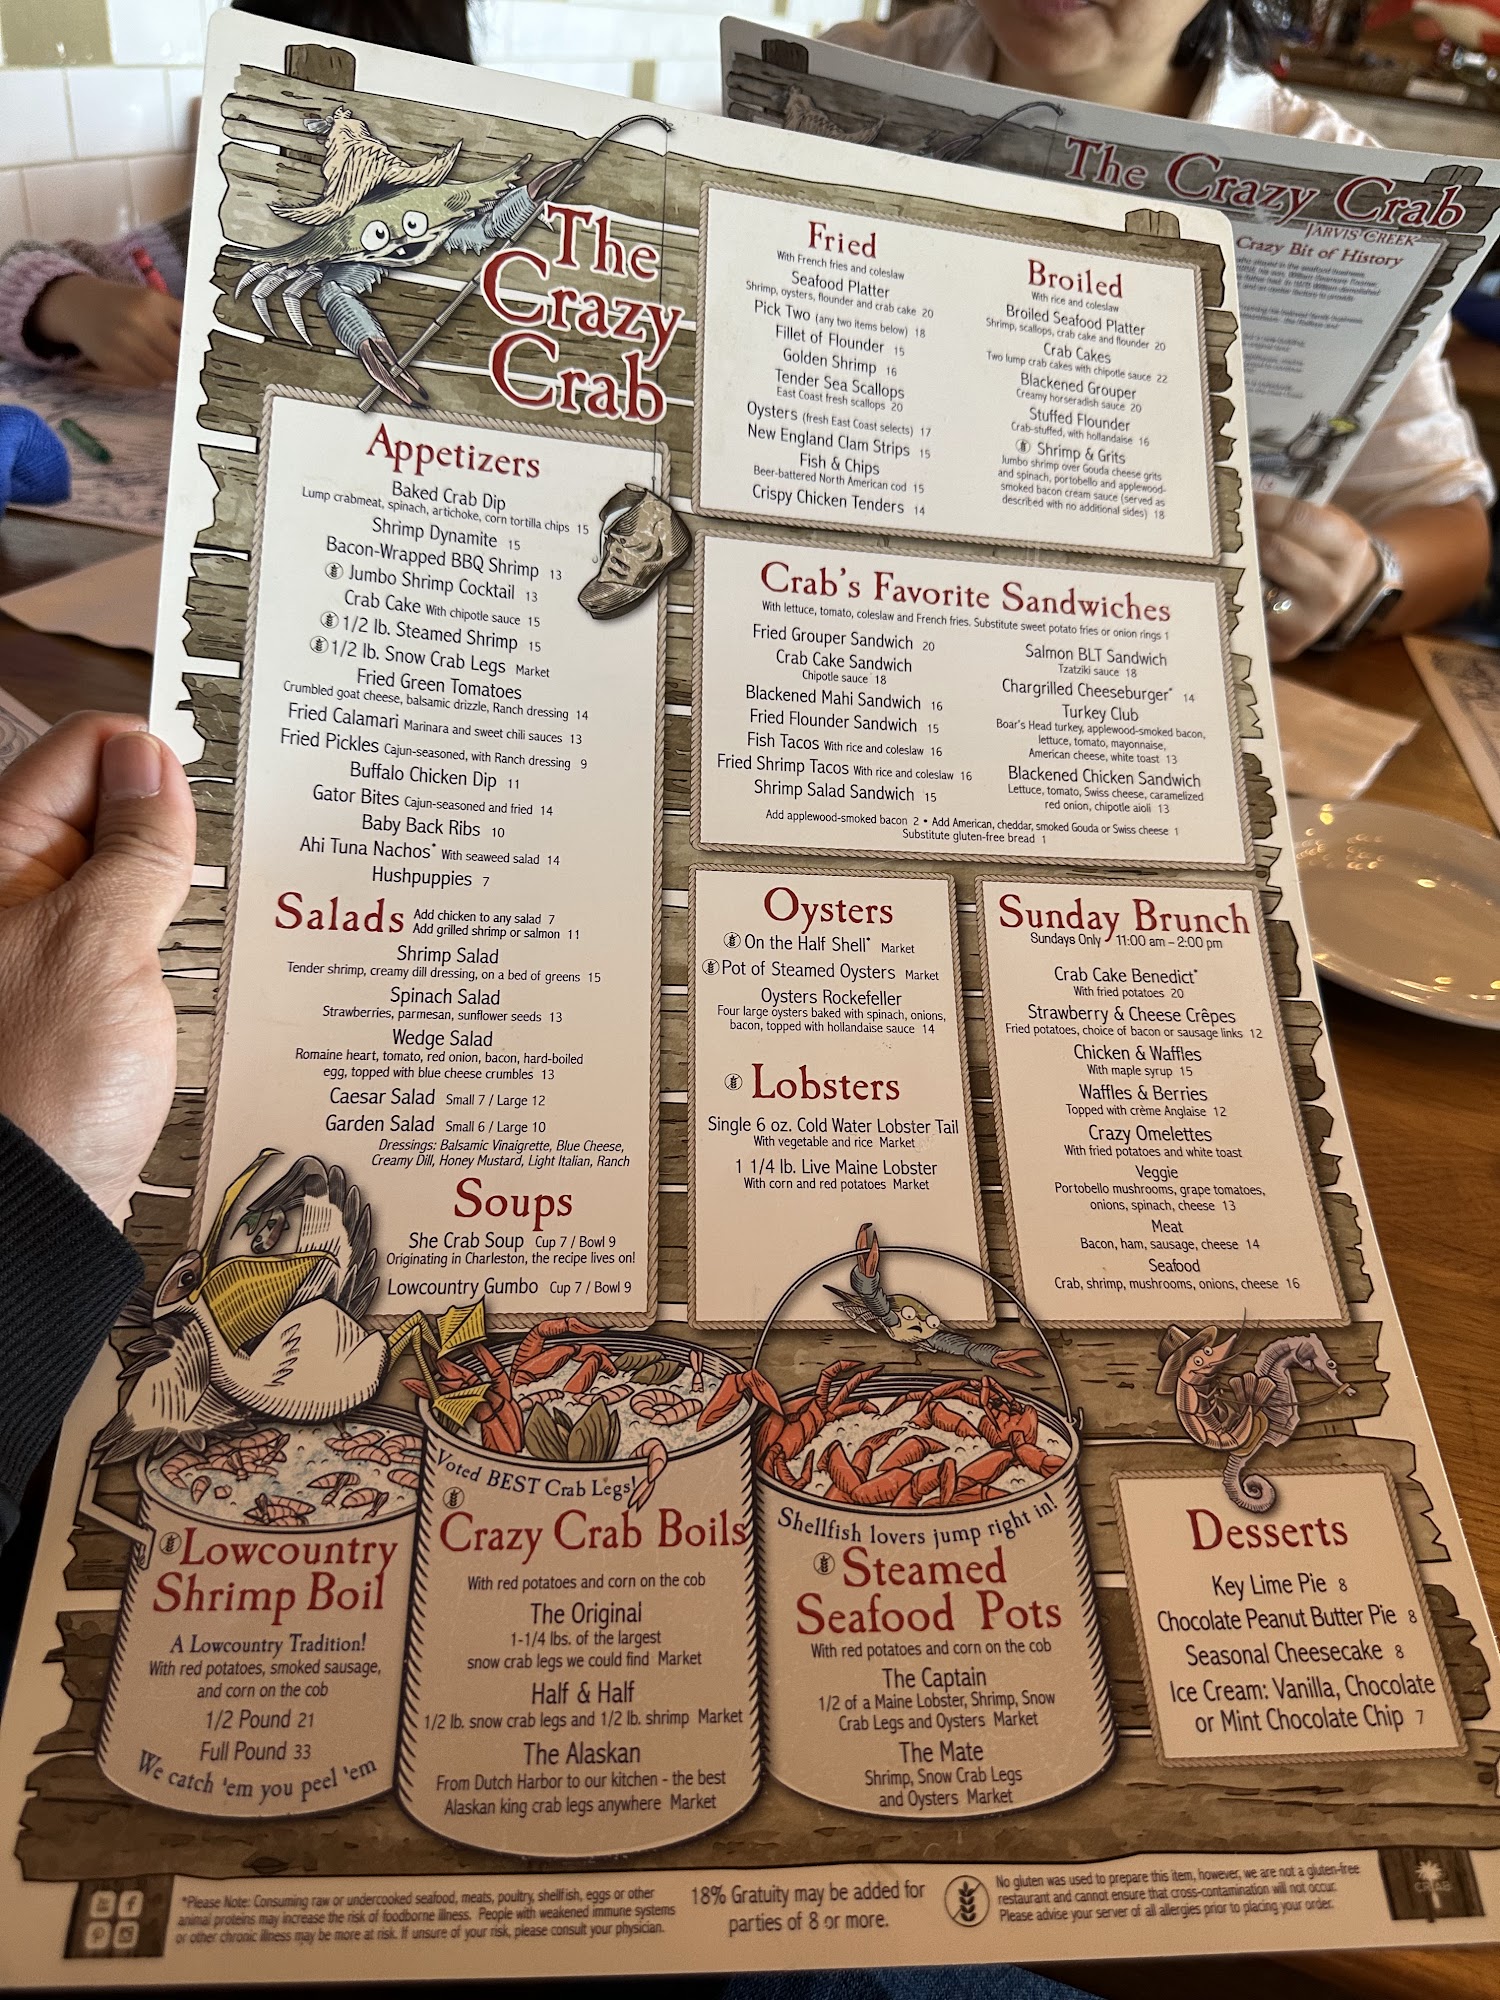 The
Crazy
Crab
Appetizers
Baked Crab Dip
Lump crabmeat, spinach, artichoke, corn tortilla chips 15
Shrimp Dynamite 15
Bacon-Wrapped BBQ Shrimp 13
Jumbo Shrimp Cocktail 13
Crab Cake With chipotle sauce 15
1/2 lb. Steamed Shrimp 15
1/2 lb. Snow Crab Legs Market
Fried Green Tomatoes
Crumbled goat cheese, balsamic drizzle, Ranch dressing 14
Fried Calamari Marinara and sweet chili sauces 13
Fried Pickles Cajun-seasoned, with Ranch dressing 9
Buffalo Chicken Dip 11
Gator Bites Cajun-seasoned and fried 14
Baby Back Ribs 10
Ahi Tuna Nachos* With seaweed salad 14
Hushpuppies 7
Salads Add chicken to any salad 7
Add grilled shrimp or salmon 11
Shrimp Salad
Tender shrimp, creamy dill dressing, on a bed of greens 15
Spinach Salad
Strawberries, parmesan, sunflower seeds 13
Wedge Salad
Romaine heart, tomato, red onion, bacon, hard-boiled
egg, topped with blue cheese crumbles 13
Caesar Salad Small 7 / Large 12
Garden Salad Small 6 / Large 10
Dressings: Balsamic Vinaigrette, Blue Cheese,
Creamy Dill, Honey Mustard, Light Italian, Ranch
Soups
She Crab Soup Cup 7 / Bowl 9
Originating in Charleston, the recipe lives on!
Lowcountry Gumbo Cup 7 / Bowl 9
Fried
With French fries and coleslaw
Seafood Platter
Shrimp, oysters, flounder and crab cake 20
Pick Two (any two items below) 18
Fillet of Flounder 15
Golden Shrimp 16
Tender Sea Scallops
East Coast fresh scallops 20
Oysters (fresh East Coast selects) 17
New England Clam Strips 15
Fish & Chips
Beer-battered North American cod 15
Crispy Chicken Tenders 14
Broiled
With rice and coleslaw
Broiled Seafood Platter
Shrimp, scallops, crab cake and flounder 20
Crab Cakes
Two lump crab cakes with chipotle sauce 22
Blackened Grouper
Creamy horseradish sauce 20
Stuffed Flounder
Crab-stuffed, with hollandaise 16
Shrimp & Grits
Jumbo shrimp over Gouda cheese grits
and spinach, portobello and applewood-
smoked bacon cream sauce (served as
described with no additional sides) 18
Crab's Favorite Sandwiches
With lettuce, tomato, coleslaw and French fries. Substitute sweet potato fries or onion rings 1
Fried Grouper Sandwich 20
Crab Cake Sandwich
Chipotle sauce 18
Blackened Mahi Sandwich 16
Fried Flounder Sandwich 15
Fish Tacos With rice and coleslaw 16
Fried Shrimp Tacos With rice and coleslaw 16
Shrimp Salad Sandwich 15
Salmon BLT Sandwich
Tzatziki sauce 18
Chargrilled Cheeseburger* 14
Turkey Club
Boar's Head turkey, applewood-smoked bacon,
lettuce, tomato, mayonnaise,
American cheese, white toast 13
Blackened Chicken Sandwich
Lettuce, tomato, Swiss cheese, caramelized
red onion, chipotle aioli 13
Add applewood-smoked bacon 2 • Add American, cheddar, smoked Gouda or Swiss cheese 1
Substitute gluten-free bread 1
Oysters
On the Half Shell* Market
Pot of Steamed Oysters Market
Oysters Rockefeller
Four large oysters baked with spinach, onions,
bacon, topped with hollandaise sauce 14
Lobsters
Single 6 oz. Cold Water Lobster Tail
With vegetable and rice Market
1 1/4 lb. Live Maine Lobster
With corn and red potatoes Market
Sunday Brunch
Sundays Only 11:00 am – 2:00 pm
Crab Cake Benedict*
With fried potatoes 20
Strawberry & Cheese Crêpes
Fried potatoes, choice of bacon or sausage links 12
Chicken & Waffles
With maple syrup 15
Waffles & Berries
Topped with crème Anglaise 12
Crazy Omelettes
With fried potatoes and white toast
Veggie
Portobello mushrooms, grape tomatoes,
onions, spinach, cheese 13
Meat
Bacon, ham, sausage, cheese 14
Seafood
Crab, shrimp, mushrooms, onions, cheese 16
Lowcountry
Shrimp Boil
A Lowcountry Tradition!
With red potatoes, smoked sausage,
and corn on the cob
1/2 Pound 21
Full Pound 33
We catch 'em you peel 'em
Voted BEST Crab Legs!
Crazy Crab Boils
With red potatoes and corn on the cob
The Original
1-1/4 lbs. of the largest
snow crab legs we could find Market
Half & Half
1/2 lb. snow crab legs and 1/2 lb. shrimp Market
The Alaskan
From Dutch Harbor to our kitchen - the best
Alaskan king crab legs anywhere Market
Shellfish lovers jump right in!
Steamed
Seafood Pots
With red potatoes and corn on the cob
The Captain
1/2 of a Maine Lobster, Shrimp, Snow
Crab Legs and Oysters Market
The Mate
Shrimp, Snow Crab Legs
and Oysters Market
Desserts
Key Lime Pie 8
Chocolate Peanut Butter Pie 8
Seasonal Cheesecake 8
Ice Cream: Vanilla, Chocolate
or Mint Chocolate Chip 7
*Please Note: Consuming raw or undercooked seafood, meats, poultry, shellfish, eggs or other
animal proteins may increase the risk of foodborne illness. People with weakened immune systems
or other chronic illness may be more at risk. If unsure of your risk, please consult your physician.
18% Gratuity may be added for
parties of 8 or more.
No gluten was used to prepare this item, however, we are not a gluten-free
restaurant and cannot ensure that cross-contamination will not occur.
Please advise your server of all allergies prior to placing your order.
The Crazy Crab
JARVIS CREEK
Crazy Bit of History